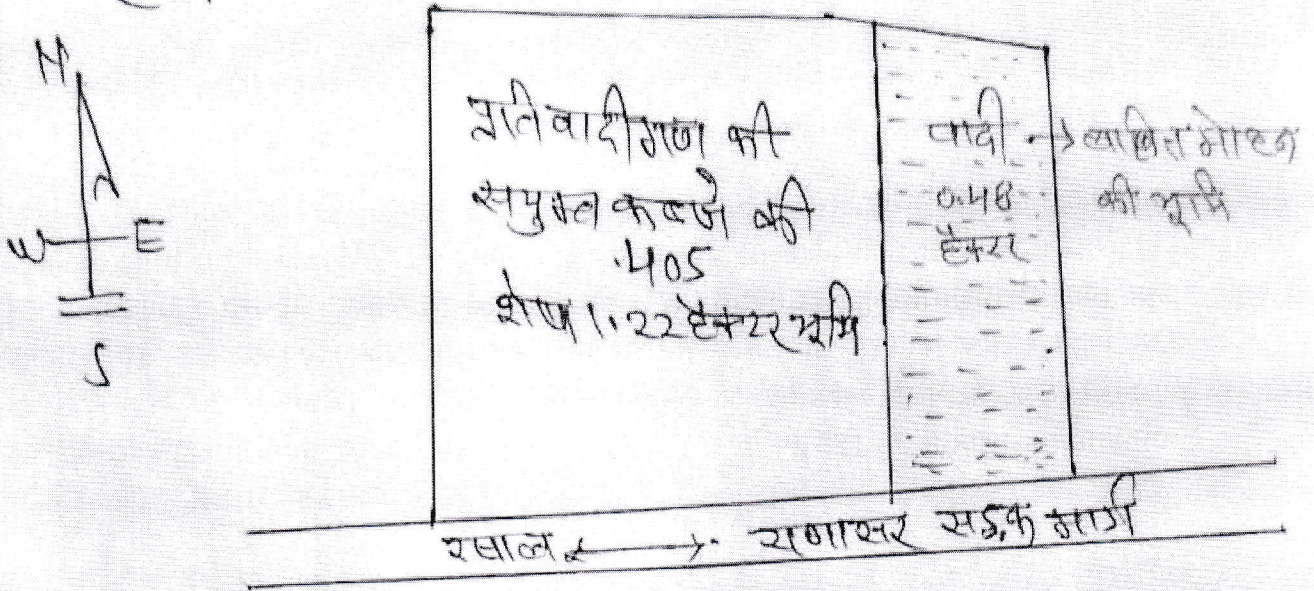 N
W E
S
प्रतिवादीगण की
सयुक्त कब्जे की
.405
शेष 1.22 हैक्टर भूमि
वादी →
0.48
हैक्टर
की भूमि
रसाल ↔ राणासर सड़क मार्ग